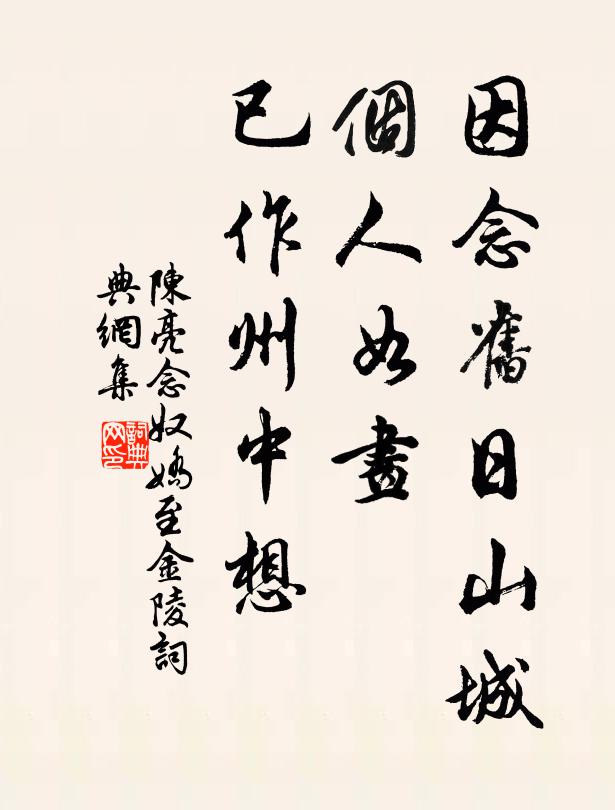 因念舊日山城
個人如畫
已作州中想
陳亮念奴嬌至金陵詞
典網集
詞典网印